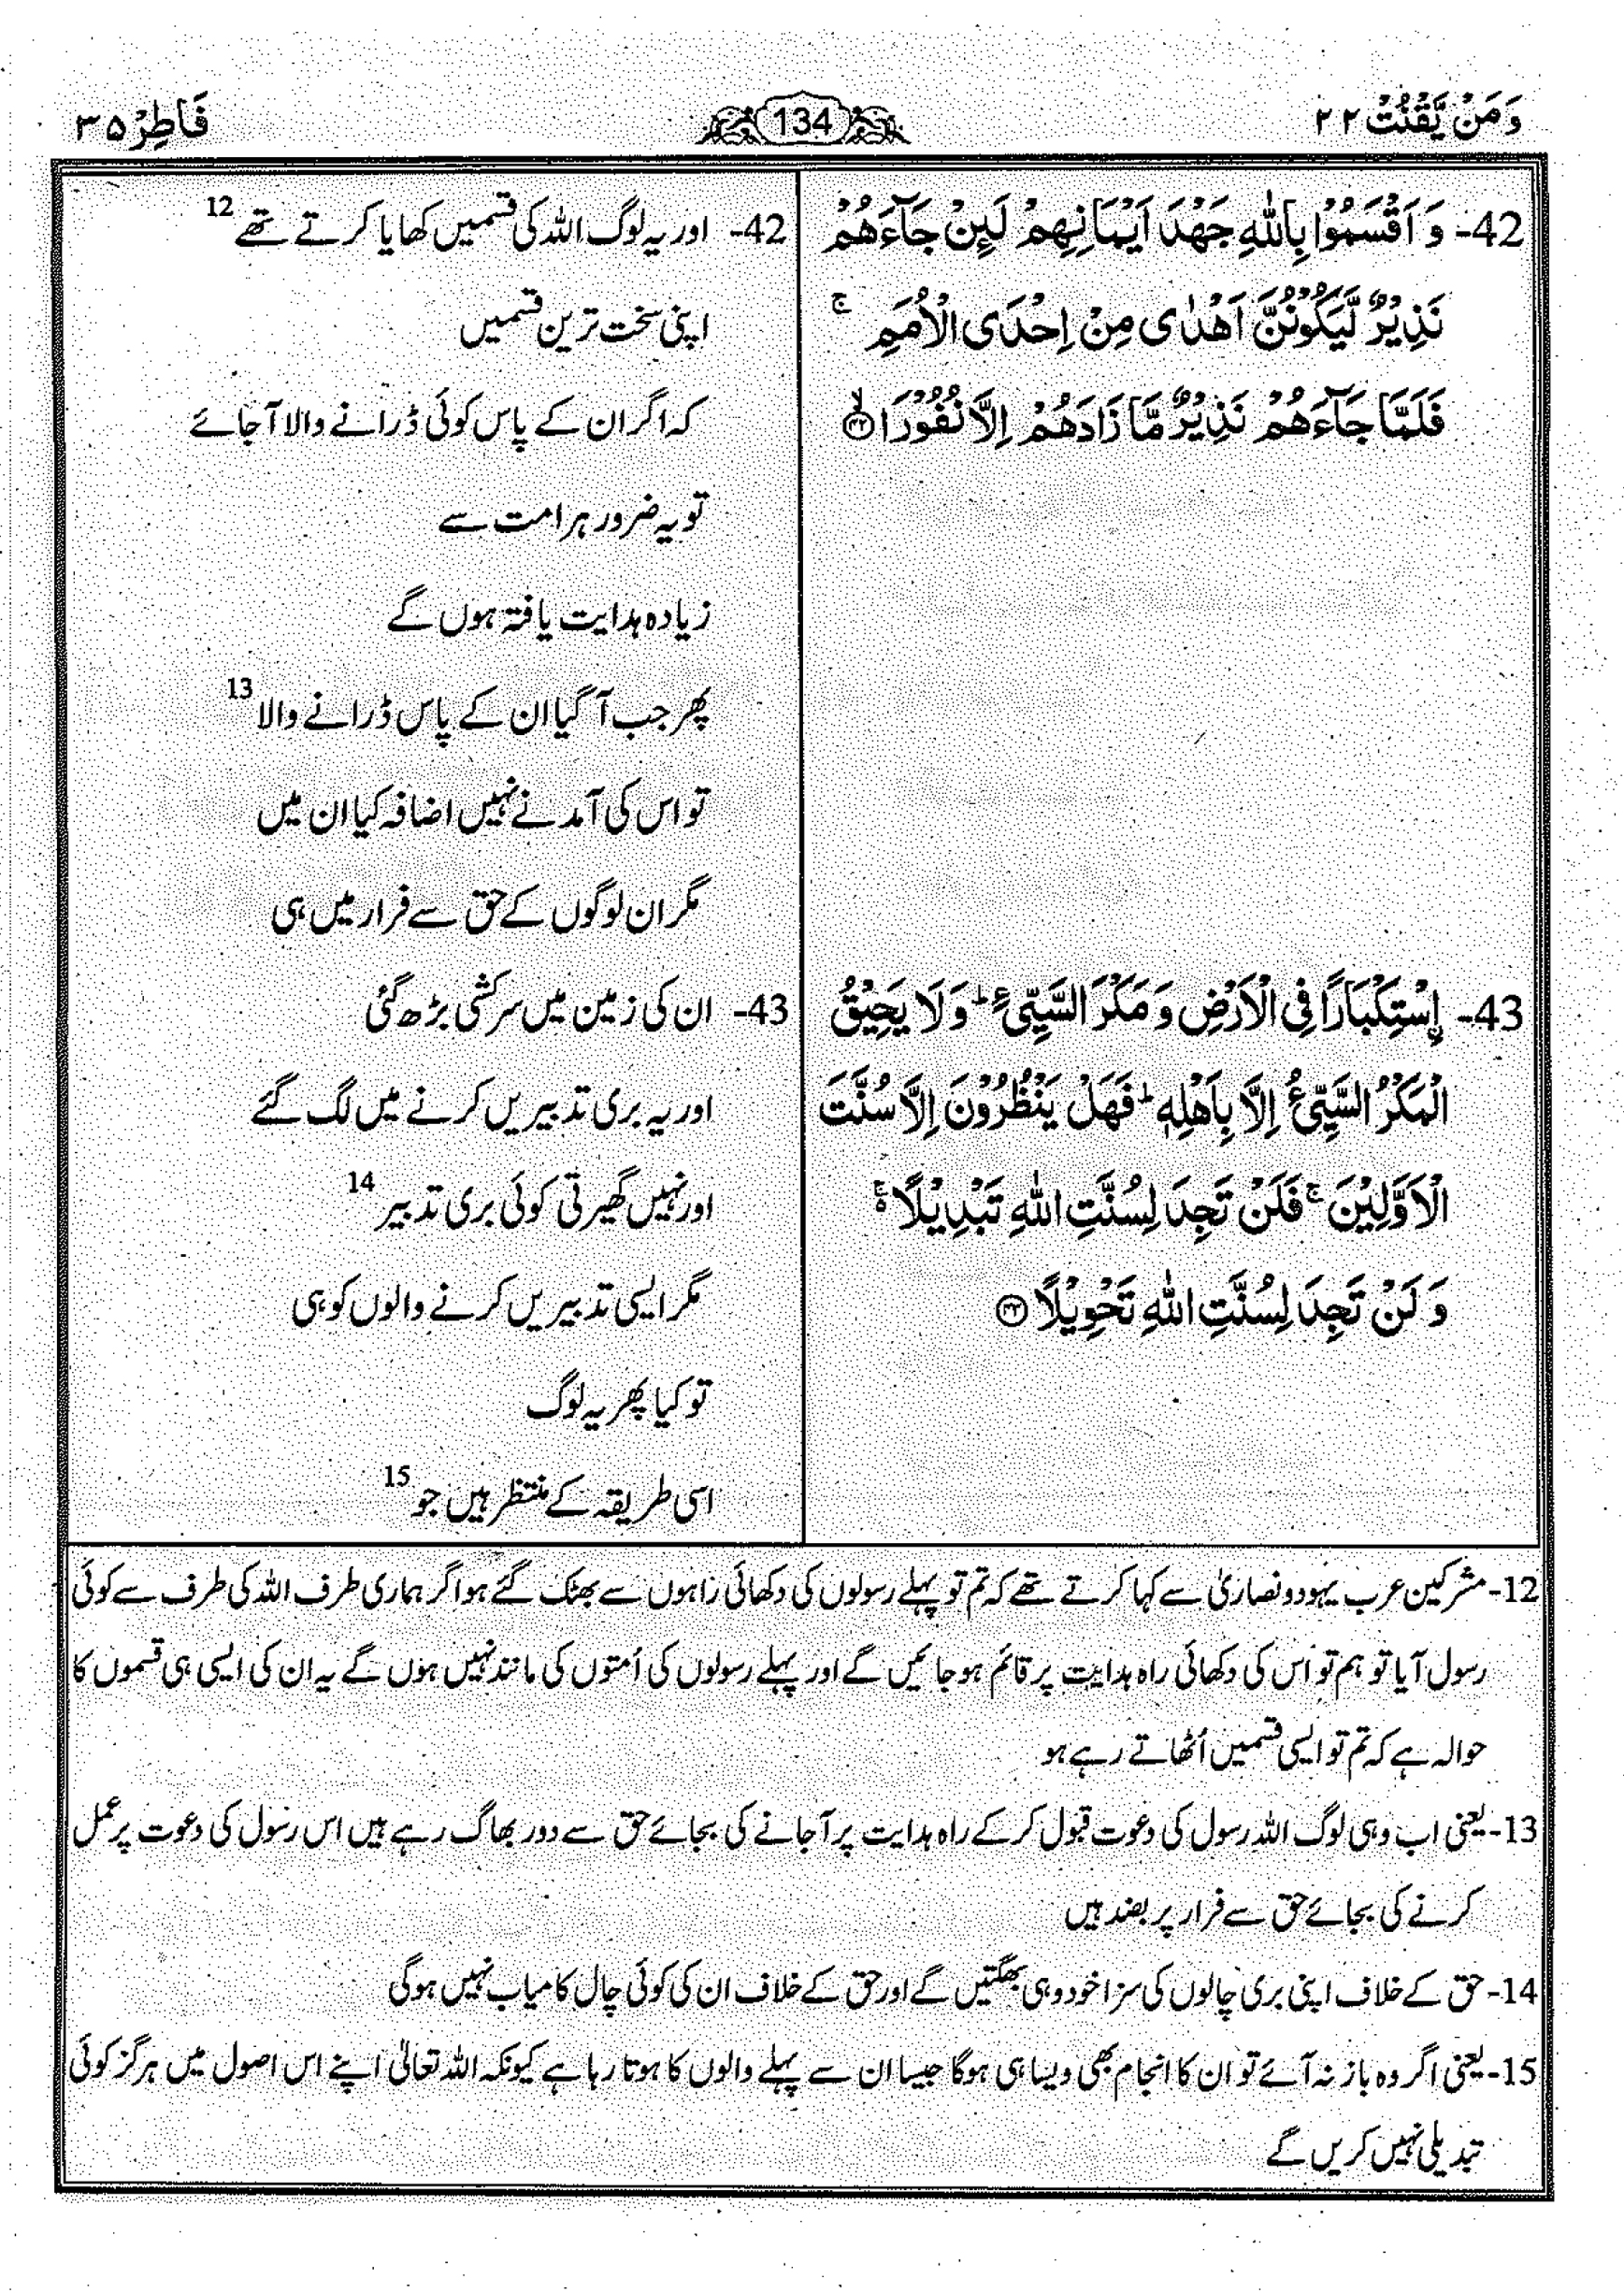 وَمَنْ يَّقْنُتْ ۲۲
134
فَاطِرْ ۳۵
42- وَ اَقْسَمُوْا بِاللّٰهِ جَهْدَ اَيْمَانِهِمْ لَىِٕنْ جَآءَهُمْ
نَذِيْرٌ لَّيَكُوْنُنَّ اَهْدٰى مِنْ اِحْدَى الْاُمَمِ ۚ
فَلَمَّا جَآءَهُمْ نَذِيْرٌ مَّا زَادَهُمْ اِلَّا نُفُوْرَا ۙ۴۲
43- اِۨسْتِكْبَارًا فِى الْاَرْضِ وَ مَكْرَ السَّيِّئِ ؕ وَ لَا يَحِيْقُ
الْمَكْرُ السَّيِّئُ اِلَّا بِاَهْلِهٖ ؕ فَهَلْ يَنْظُرُوْنَ اِلَّا سُنَّتَ
الْاَوَّلِيْنَ ۚ فَلَنْ تَجِدَ لِسُنَّتِ اللّٰهِ تَبْدِيْلًا ۚ۬
وَ لَنْ تَجِدَ لِسُنَّتِ اللّٰهِ تَحْوِيْلًا ۴۳
42- اور یہ لوگ اللہ کی قسمیں کھایا کرتے تھے 12
اپنی سخت ترین قسمیں
کہ اگر ان کے پاس کوئی ڈرانے والا آ جائے
تو یہ ضرور ہر امت سے
زیادہ ہدایت یافتہ ہوں گے
پھر جب آ گیا ان کے پاس ڈرانے والا 13
تو اس کی آمد نے نہیں اضافہ کیا ان میں
مگر ان لوگوں کے حق سے فرار میں ہی
43- ان کی زمین میں سرکشی بڑھ گئی
اور یہ بری تدبیریں کرنے میں لگ گئے
اور نہیں گھیرتی کوئی بری تدبیر 14
مگر ایسی تدبیریں کرنے والوں کو ہی
تو کیا پھر یہ لوگ
اسی طریقہ کے منتظر ہیں جو 15
12- مشرکین عرب یہود و نصاریٰ سے کہا کرتے تھے کہ تم تو پہلے رسولوں کی دکھائی راہوں سے بھٹک گئے ہو اگر ہماری طرف اللہ کی طرف سے کوئی
رسول آیا تو ہم تو اس کی دکھائی راہ ہدایت پر قائم ہو جائیں گے اور پہلے رسولوں کی اُمتوں کی مانند نہیں ہوں گے یہ ان کی ایسی ہی قسموں کا
حوالہ ہے کہ تم تو ایسی قسمیں اُٹھاتے رہے ہو
13- یعنی اب وہی لوگ اللہ رسول کی دعوت قبول کر کے راہ ہدایت پر آ جانے کی بجائے حق سے دور بھاگ رہے ہیں اس رسول کی دعوت پر عمل
کرنے کی بجائے حق سے فرار پر بضد ہیں
14- حق کے خلاف اپنی بری چالوں کی سزا خود وہی بھگتیں گے اور حق کے خلاف ان کی کوئی چال کامیاب نہیں ہوگی
15- یعنی اگر وہ باز نہ آئے تو ان کا انجام بھی ویسا ہی ہوگا جیسا ان سے پہلے والوں کا ہوتا رہا ہے کیونکہ اللہ تعالٰی اپنے اس اصول میں ہرگز کوئی
تبدیلی نہیں کریں گے